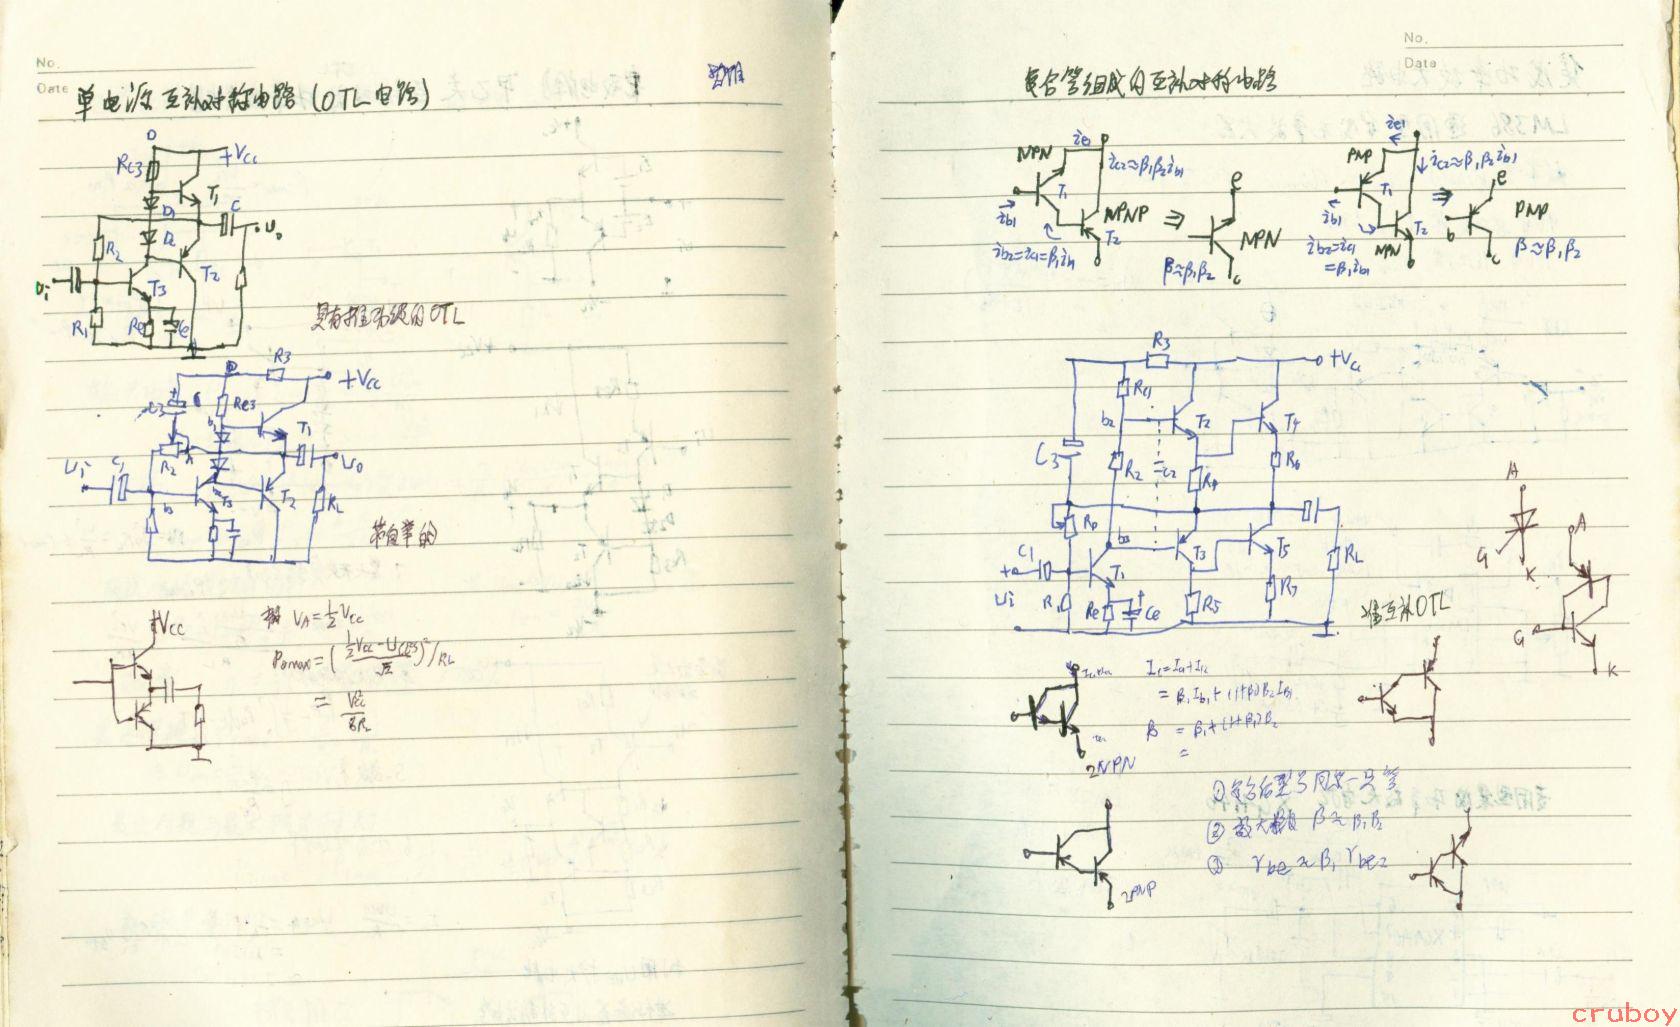 No.
Date
单电源互补对称电路(OTL电路)
D
Rc3
+Vcc
T1
D1
C
Uo
D2
R2
T2
Ui
T3
R1
Re
Ce
具有推动级的OTL
R3
+Vcc
C3
Rc3
b1
T1
R2
A
Ui
C1
Uo
b
T3
T2
RL
带自举的
+Vcc
VA=½Vcc
Pomax=(½Vcc-UCES/√2)²/RL
=Vcc²/8RL
No.
Date
复合管组成的互补对称电路
NPN
ie1
ic2≈β1β2ib1
T1
ib1
PNP
T2
ib2=ic1=β1ib1
⇒
e
NPN
c
β≈β1β2
ie1
PNP
ic2≈β1β2ib1
T1
ib1
T2
NPN
ib2=ic1
=β1ib1
⇒
e
b
PNP
c
β≈β1β2
R3
+Vcc
Rc1
b2
T2
T4
C3
R2
C2
R4
R6
Rp
b3
T3
T5
RL
C1
+
T1
Ui
R1
Re
Ce
R5
R7
准互补OTL
A
G
K
A
G
K
Ic=Ic1+Ic2
=β1Ib1+(1+β1)β2Ib1
β=β1+(1+β1)β2
=
2NPN
①复合后型号同第一只管
②放大倍数β≈β1β2
③rbe≈β1rbe2
2PNP
cruboy